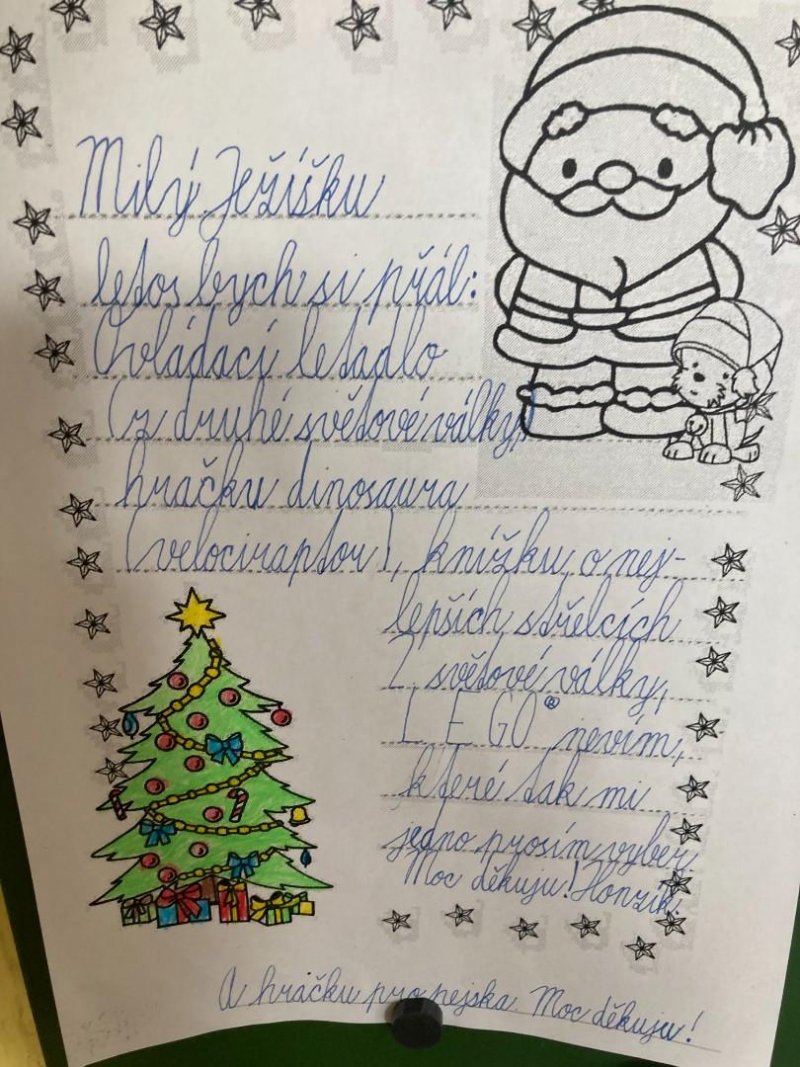 Milý Ježíšku
letos bych si přál:
Ovládací letadlo
(z druhé světové války),
hračku dinosaura
(velociraptor), knížku o nej-
lepších střelcích
2 světové války,
LEGO® nevím,
které tak mi
jedno prosím vyber.
Moc děkuju! Honzík.
A hračku pro pejska. Moc děkuju!